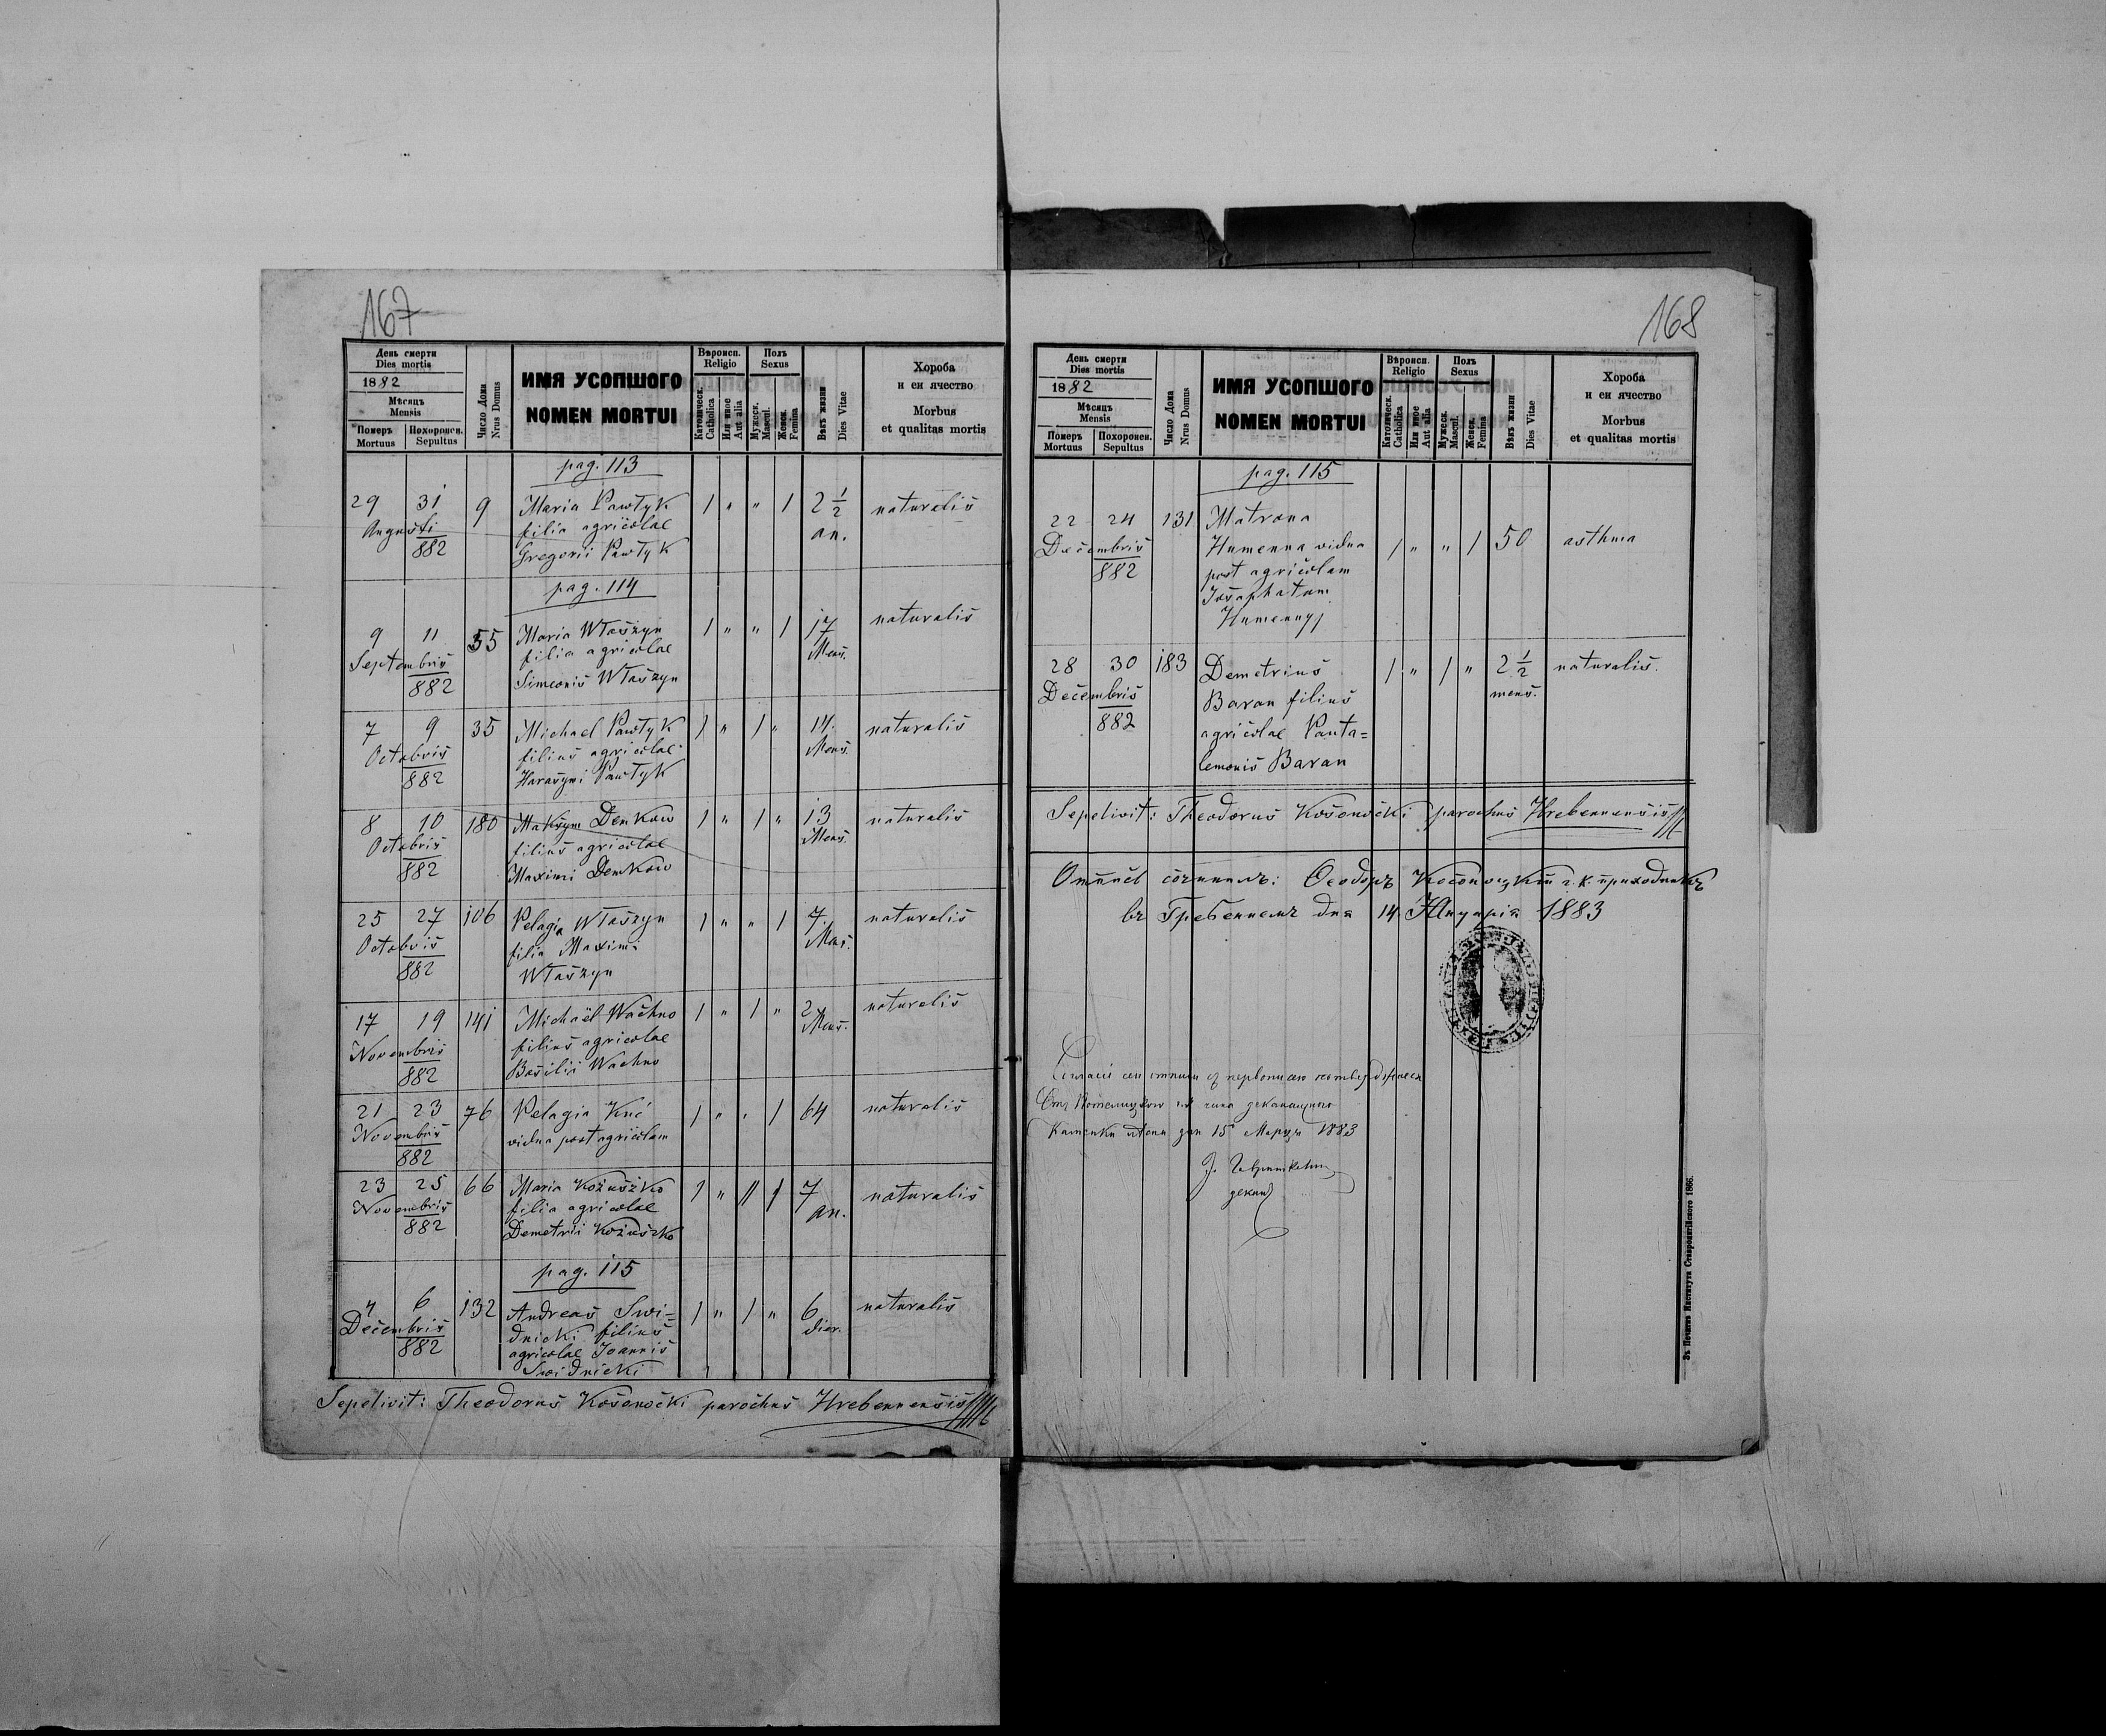 167
День смерти
Dies mortis
1882
Мѣсяцъ
Mensis
Померъ
Mortuus
Похоронен.
Sepultus
Число Дома
Nrus Domus
ИМЯ УСОПШОГО
NOMEN MORTUI
Вѣроисп.
Religio
Католическ.
Catholica
Или иное
Aut alia
Полъ
Sexus
Мужеск.
Mascul.
Женск.
Femina
Вѣкъ жизни
Dies Vitae
Хороба
и еи ячество
Morbus
et qualitas mortis
pag. 113
29 31 9 Maria Pawłyk 1 " " 1 2 1/2 naturalis
Augusti filia agricolae an.
882 Gregorii Pawłyk
pag. 114
9 11 55 Maria Właszyn 1 " " 1 17 naturalis
Septembris filia agricolae Mens.
882 Simeonis Właszyn
7 9 35 Michael Pawłyk 1 " 1 " 14. naturalis
Octobris filius agricolae Mens.
882 Harasymi Pawłyk
8 10 180 Maksym Denkow 1 " 1 " 13 naturalis
Octobris filius agricolae Mens.
882 Maximi Denkow
25 27 106 Pelagia Właszyn 1 " " 1 7. naturalis
Octobris filia Maximi Mens.
882 Właszyn
17 19 141 Michaël Wachno 1 " 1 " 2 naturalis
Novembris filius agricolae Mens.
882 Basilii Wachno
21 23 76 Pelagia Kuć 1 " " 1 64 naturalis
Novembris vidua post agricolam
882
23 25 66 Maria Kożuszko 1 " " 1 7 naturalis
Novembris filia agricolae an.
882 Demetrii Kożuszko
pag. 115
4 6 132 Andreas Swi= 1 " 1 " 6 naturalis
Decembris dnicki filius dier.
882 agricolae Joannis
Swidnicki
Sepelivit: Theodorus Kosonocki parochus Hrebennensis
168
День смерти
Dies mortis
1882
Мѣсяцъ
Mensis
Померъ
Mortuus
Похоронен.
Sepultus
Число Дома
Nrus Domus
ИМЯ УСОПШОГО
NOMEN MORTUI
Вѣроисп.
Religio
Католическ.
Catholica
Или иное
Aut alia
Полъ
Sexus
Мужеск.
Mascul.
Женск.
Femina
Вѣкъ жизни
Dies Vitae
Хороба
и еи ячество
Morbus
et qualitas mortis
pag. 115
22 24 131 Matrona
Decembris Humenna vidua 1 " " 1 50 asthma
882 post agricolam
Josaphatum
Humennyj
28 30 183 Demetrius 1 " 1 " 2 1/2 naturalis.
Decembris Baran filius mens.
882 agricolae Panta=
lemonis Baran
Sepelivit: Theodorus Kosonocki parochus Hrebennensis
Ѳеодоръ г. к. приходникъ
въ Гребенномъ дня 14 Януарія 1883
дня 15 Марця 1883
Зъ Печатнѣ Института Ставропигійского 1866.